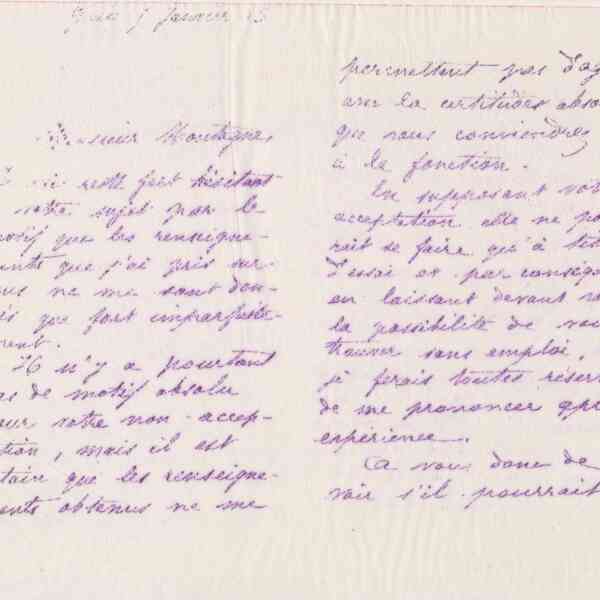 Janvier
Monsieur Montagne,
reste fort hésitant
votre sujet par le
motif que les renseigne-
ments que j'ai pris sur
vous ne me sont don-
nés que fort imparfaite-
ment.
Il n'y a pourtant
pas de motif absolu
pour votre non-accep-
tation, mais il est
que les renseigne-
ments obtenus ne me
permettent pas d'ag
avec la certitude abso
que vous conviendrez
à la fonction.
En supposant votre
acceptation elle ne pour
rait se faire qu'à tit
d'essai et par conség
en laissant devant vo
la possibilité de vou
trouver sans emploi,
je ferais toutes réser
de me prononcer apr
expérience.
A vous donc de
voir s'il pourrait